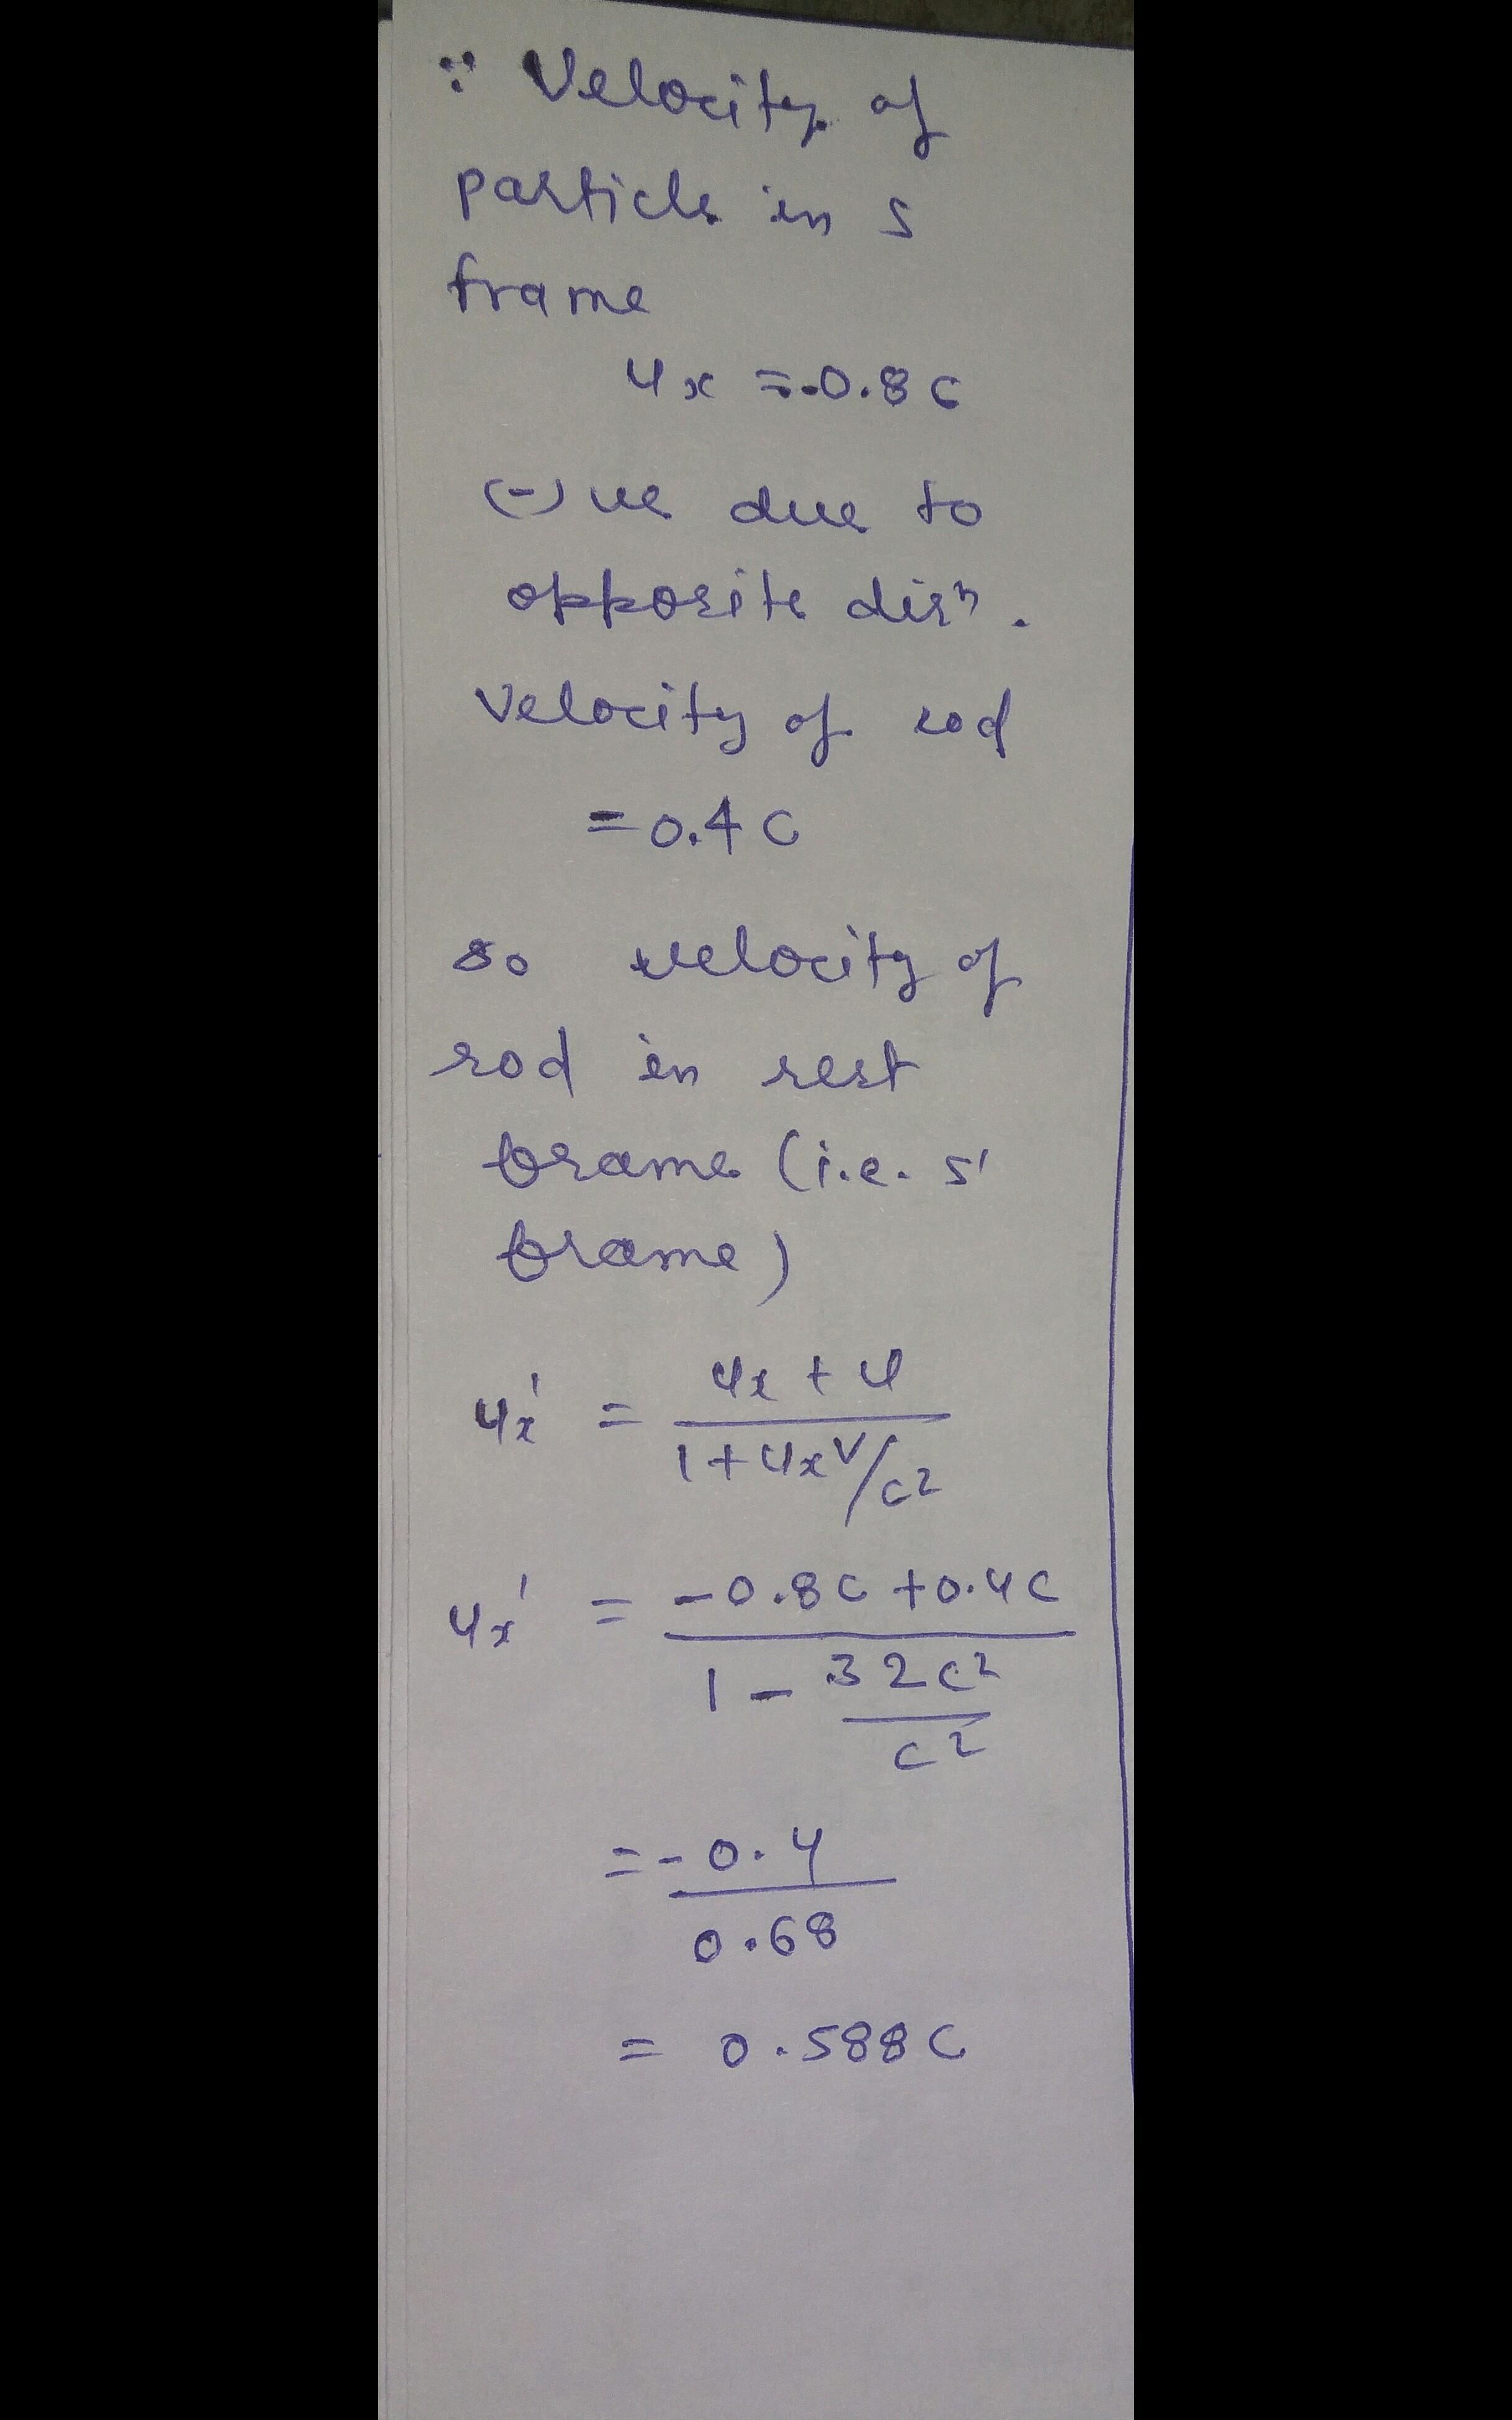 ∵ Velocity of
particle in s
frame
ux = -0.8c
(-)ve due to
opposite dirn.
Velocity of rod
= 0.4c
so velocity of
rod in rest
frame (i.e. s'
frame)
ux' = ux + u / 1 + uxv/c²
ux' = -0.8c + 0.4c / 1 - .32c²/c²
= -0.4 / 0.68
= 0.588c